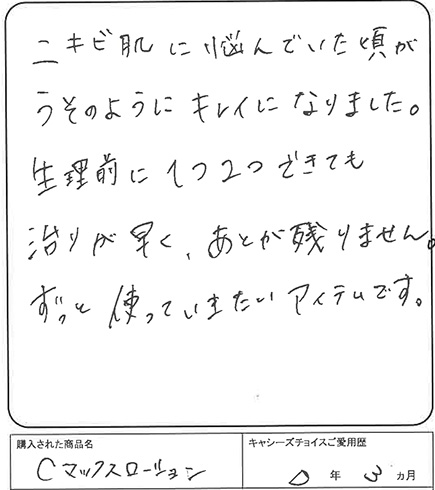 ニキビ肌に悩んでいた頃が
うそのようにキレイになりました。
生理前に1つ2つできても
治りが早く、あとが残りません。
ずっと使っていきたいアイテムです。
購入された商品名
キャシーズチョイスご愛用歴
Cマックスローション
0年3ヵ月